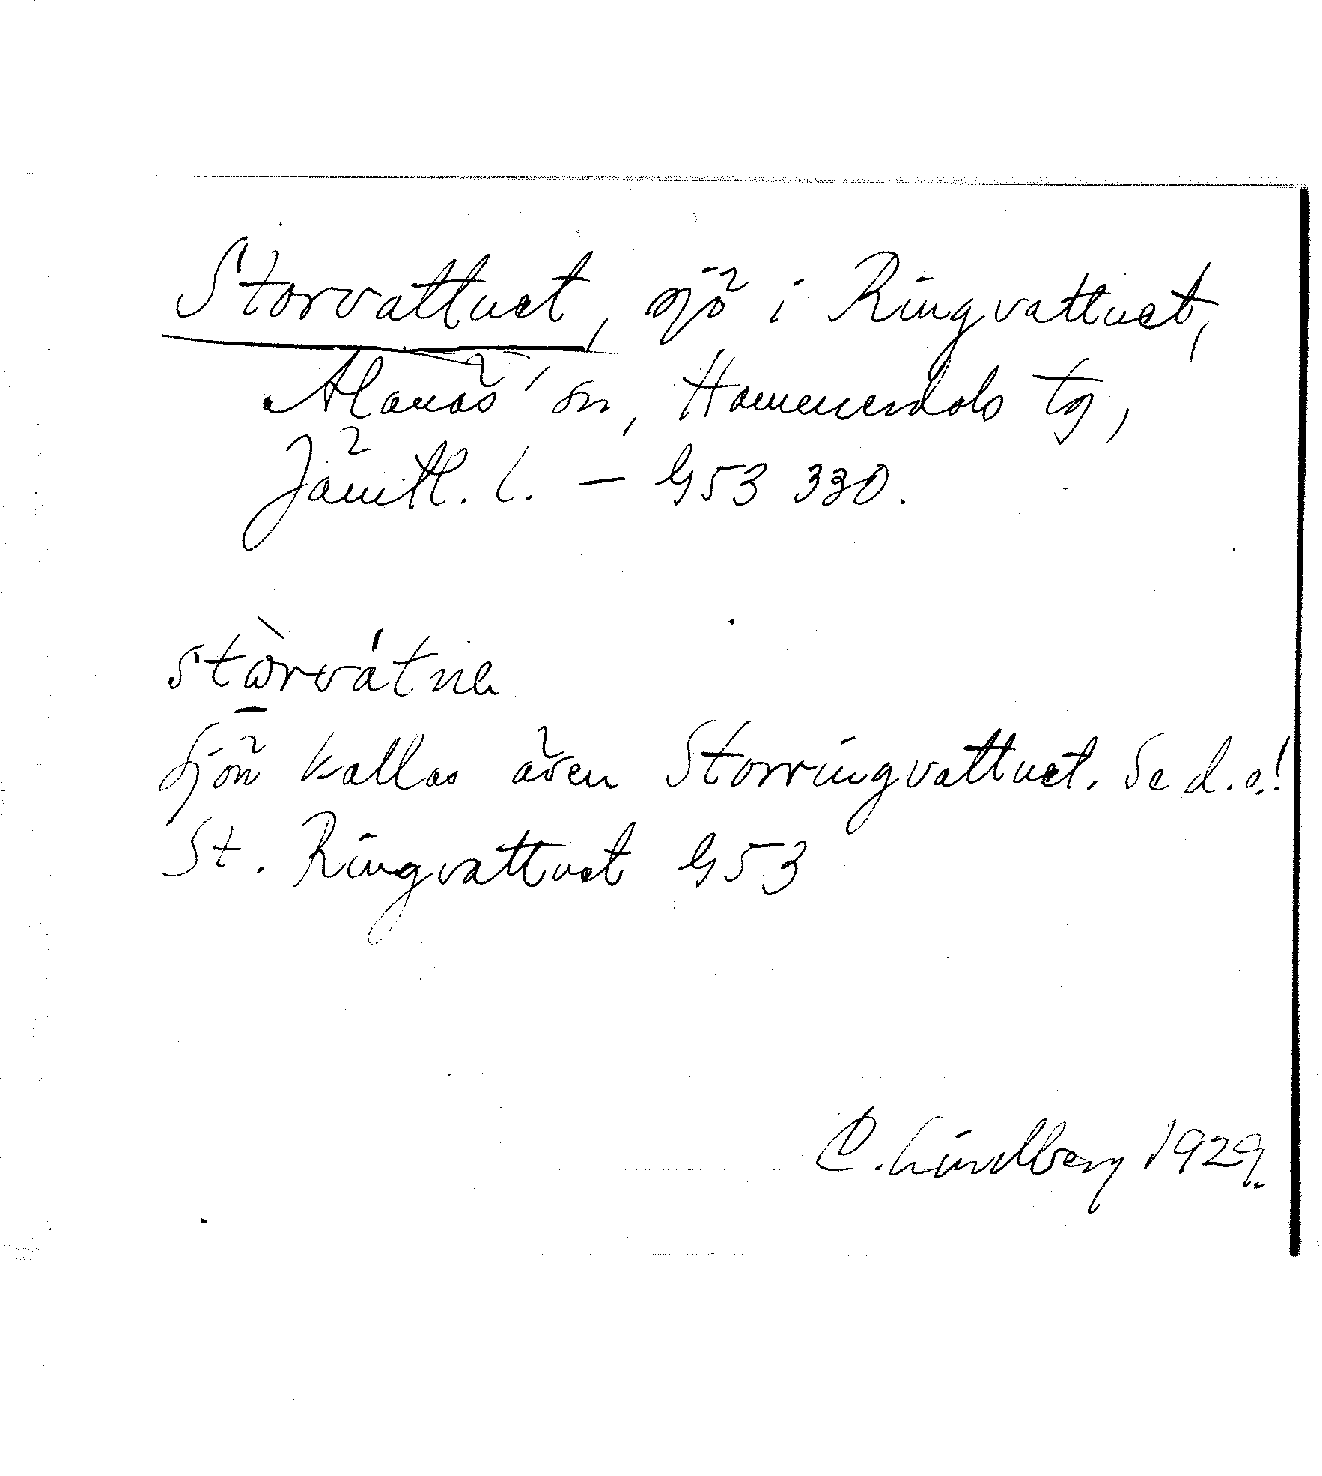 Storvattnet, sjö i Ringvattnet,
Alanäs sn, Hammerdals tg,
Jämtl. l. – G53 330.
Sjön kallas även Storringvattnet. Se d.o!
St. Ringvattnet G53
C. Lindberg 1929.